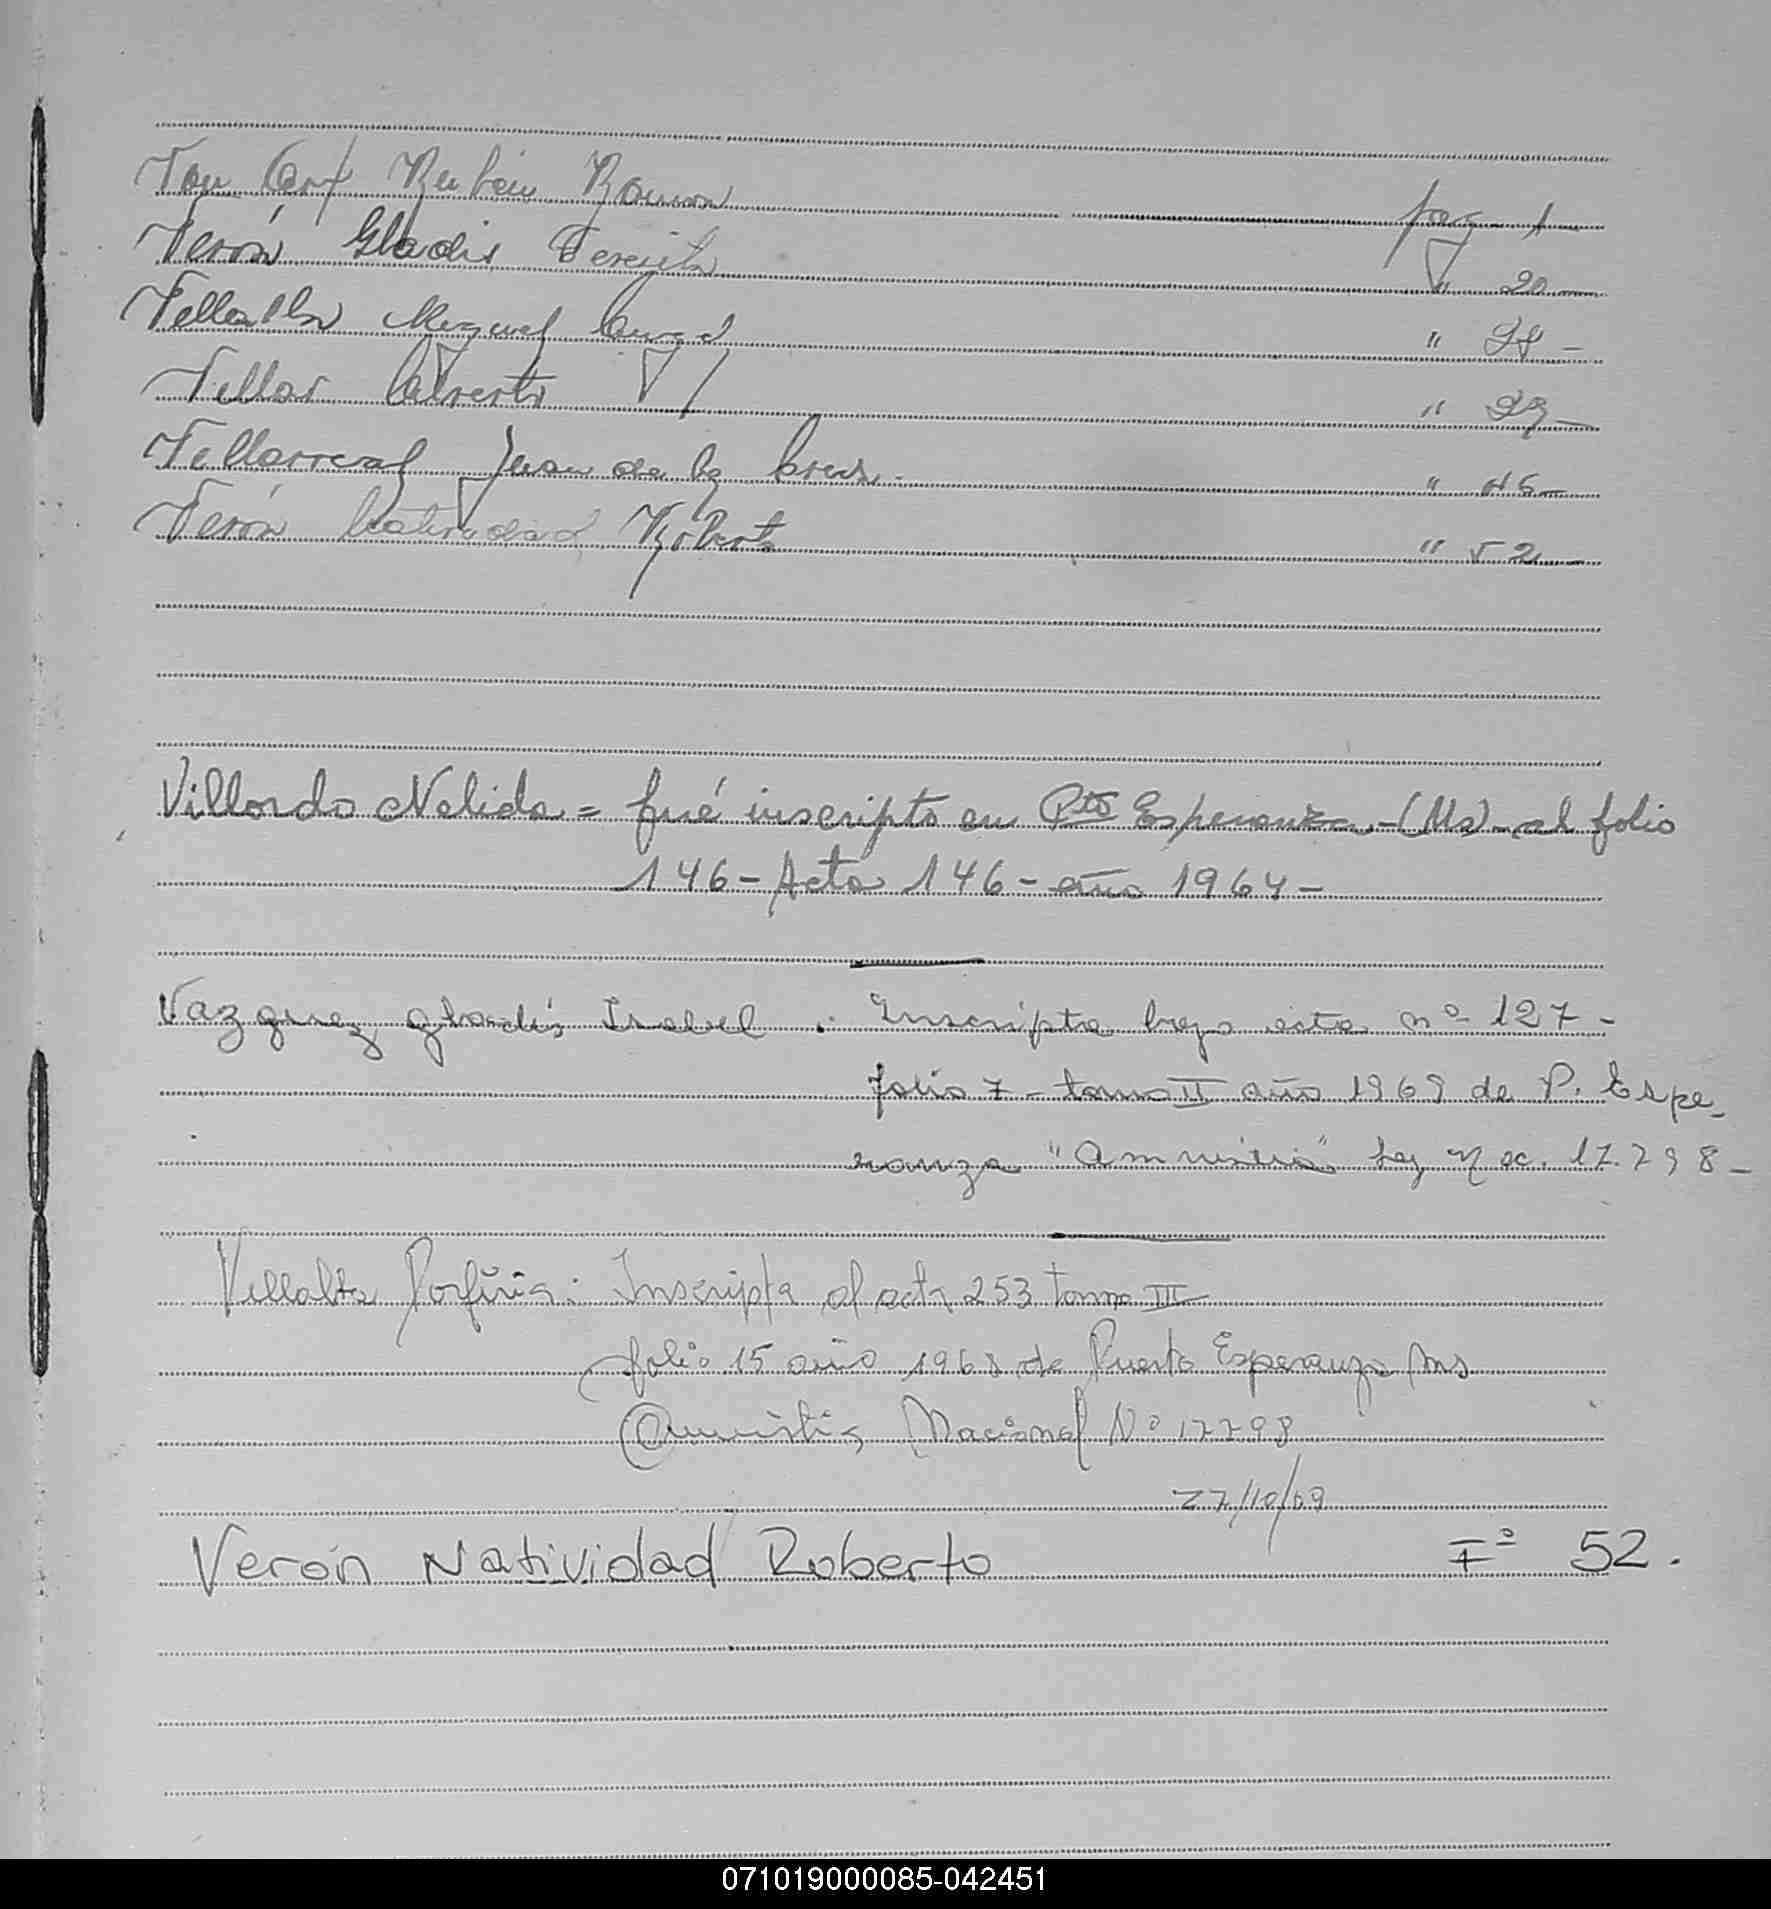 Van Rubén Ramon pag 1
Verón Gladis Teresita " 20
Villalba Miguel Angel " 28 -
Villar Alberto " 29 -
Villarreal Juan de la Cruz. " 45 -
Verón Natividad Roberto " 52 -
Villordo Nelida = fué inscripto en Pto Esperanza - (Ms) - al folio
146 - Acta 146 - año 1964 -
Vazquez gladis Isabel . Inscripta bajo acta nº 127 -
folio 7 - tomo II año 1969 de P. Espe-
ranza "Amnistia" Ley 17.798 -
Villalta Porfiria: Inscripta al acta 253 tomo III
folio 15 año 1968 de Puerto Esperanza Ms
Amnistia Nacional Nº 17798
27/10/09
Verón Natividad Roberto Fº 52.
071019000085-042451